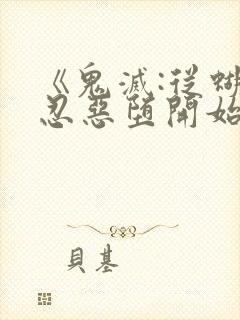 《鬼滅:從蝴
忍惡墮開始
貝基